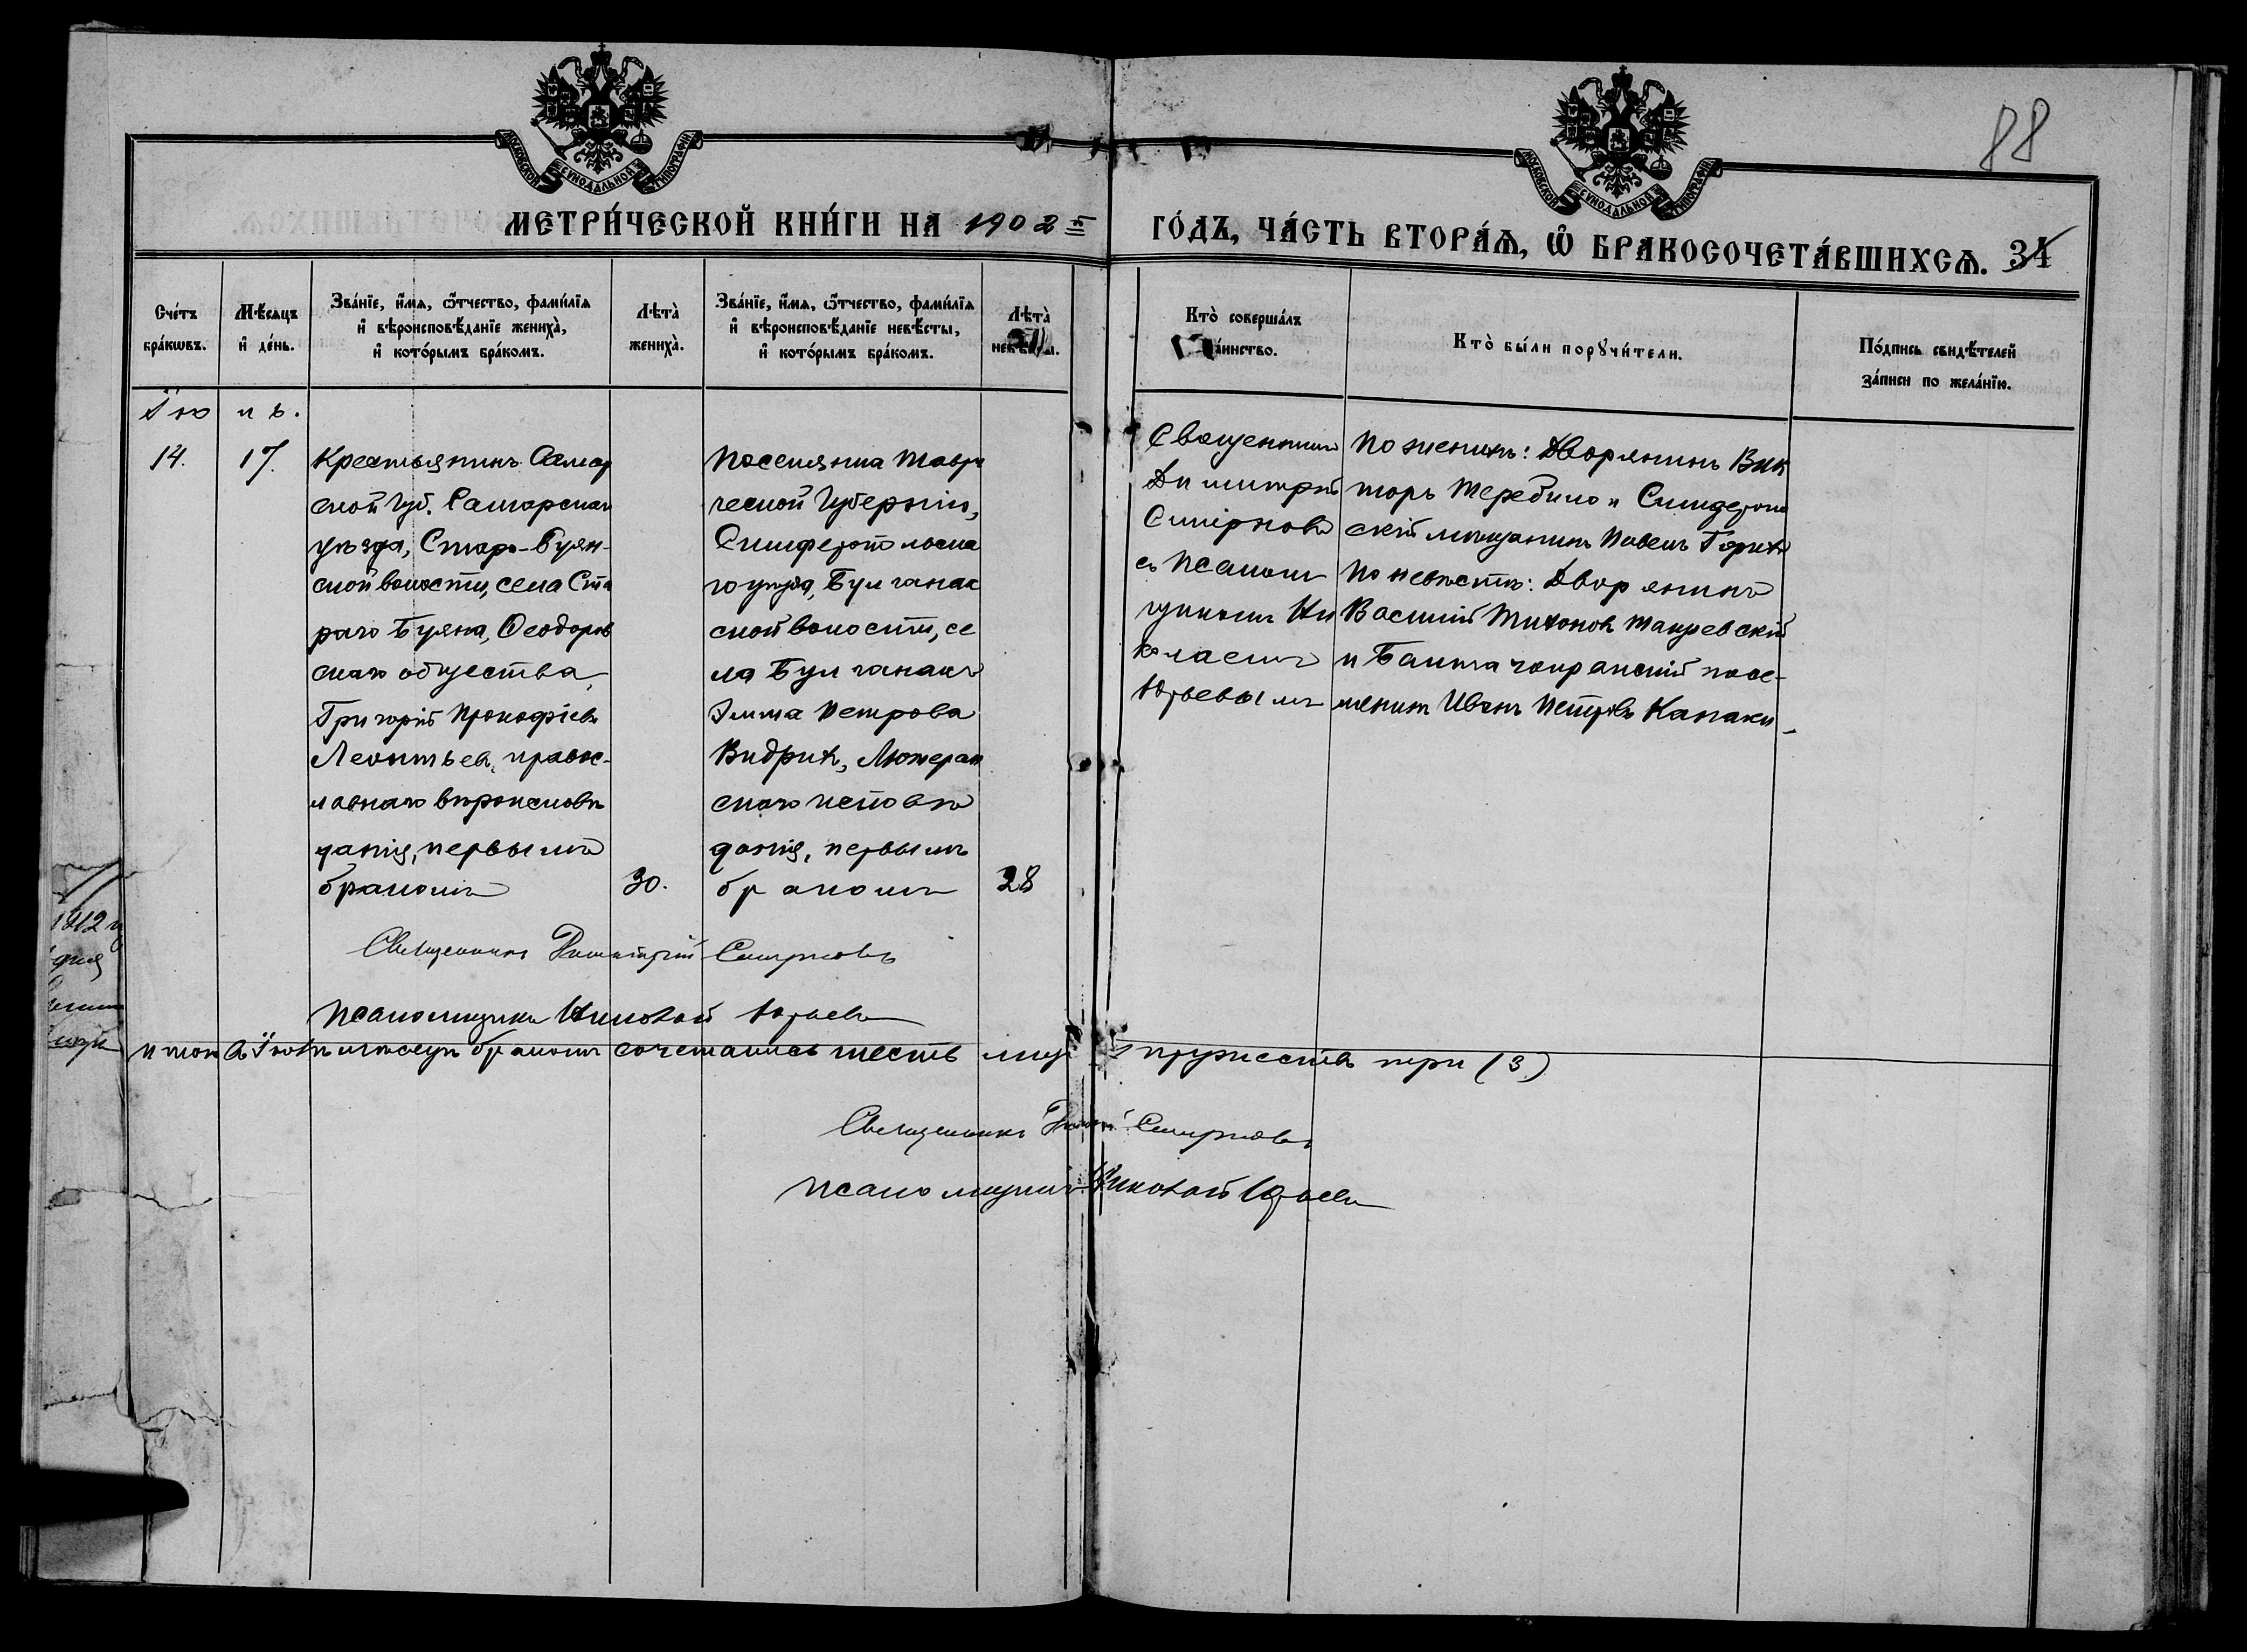 МОСКОВСКОЙ СѴНОДАЛЬНОЙ ТИПОГРАФІИ
МОСКОВСКОЙ СѴНОДАЛЬНОЙ ТИПОГРАФІИ
88
МЕТРИ́ЧЕСКОЙ КНИ́ГИ НА 1902 й ГО́ДЪ, ЧА́СТЬ ВТОРА́Ѧ, Ѽ БРАКОСОЧЕТА́ВШИХСѦ. 34
Сче́тъ бра́кѡвъ.
Мѣ́сѧцъ и҆ де́нь.
Зва́нїе, и҆́мѧ, ѻ҆́тчество, фами́лїѧ и҆ вѣроисповѣ́данїе жениха̀, и҆ кото́рымъ бра́комъ.
Лѣта̀ жениха̀.
Зва́нїе, и҆́мѧ, ѻ҆́тчество, фами́лїѧ и҆ вѣроисповѣ́данїе невѣ́сты, и҆ кото́рымъ бра́комъ.
Лѣта̀
Кто̀ соверша́лъ
Кто̀ бы́ли порꙋчи́тели.
По́дпись свидѣ́телей за́писи по жела́нїю.
Іюнь.
14.
17.
Крестьянинъ Самар
ской Губ. Самарскаго
уѣзда, Старо-Буян-
ской волости, села Ста
раго Буяна, Ѳеодоров
скаго общества,
Григорій Прокофіевъ
Леонтьевъ, правос-
лавнаго вѣроисповѣ
данія, первымъ
бракомъ
30.
Поселянка Таври
ческой Губерніи,
Симферопольска
го уѣзда, Булганак
ской волости, се
ла Булганакъ
Эмма Петрова
Видрихъ, Лютеран
скаго исповѣ
данія, первымъ
бракомъ
28
Священникъ
Димитрій
Смирновъ
съ Псалом
щикомъ Ни
колаемъ
Юрьевымъ
По женихѣ: Дворянинъ Вик
торъ Теребило и Симферопо
скій мѣщанинъ Павелъ
По невѣстѣ: Дворянинъ
Василій Тихоновъ
и поселянинъ Иванъ Петровъ Канаки
Священникъ Димитрій Смирновъ
Псаломщикъ Николай Юрьевъ
Итого въ Іюнѣ мѣсяцѣ бракомъ сочетались шесть лицъ, супружествъ три (3)
Священникъ Смирновъ
Псаломщикъ Николай Юрьевъ
1912